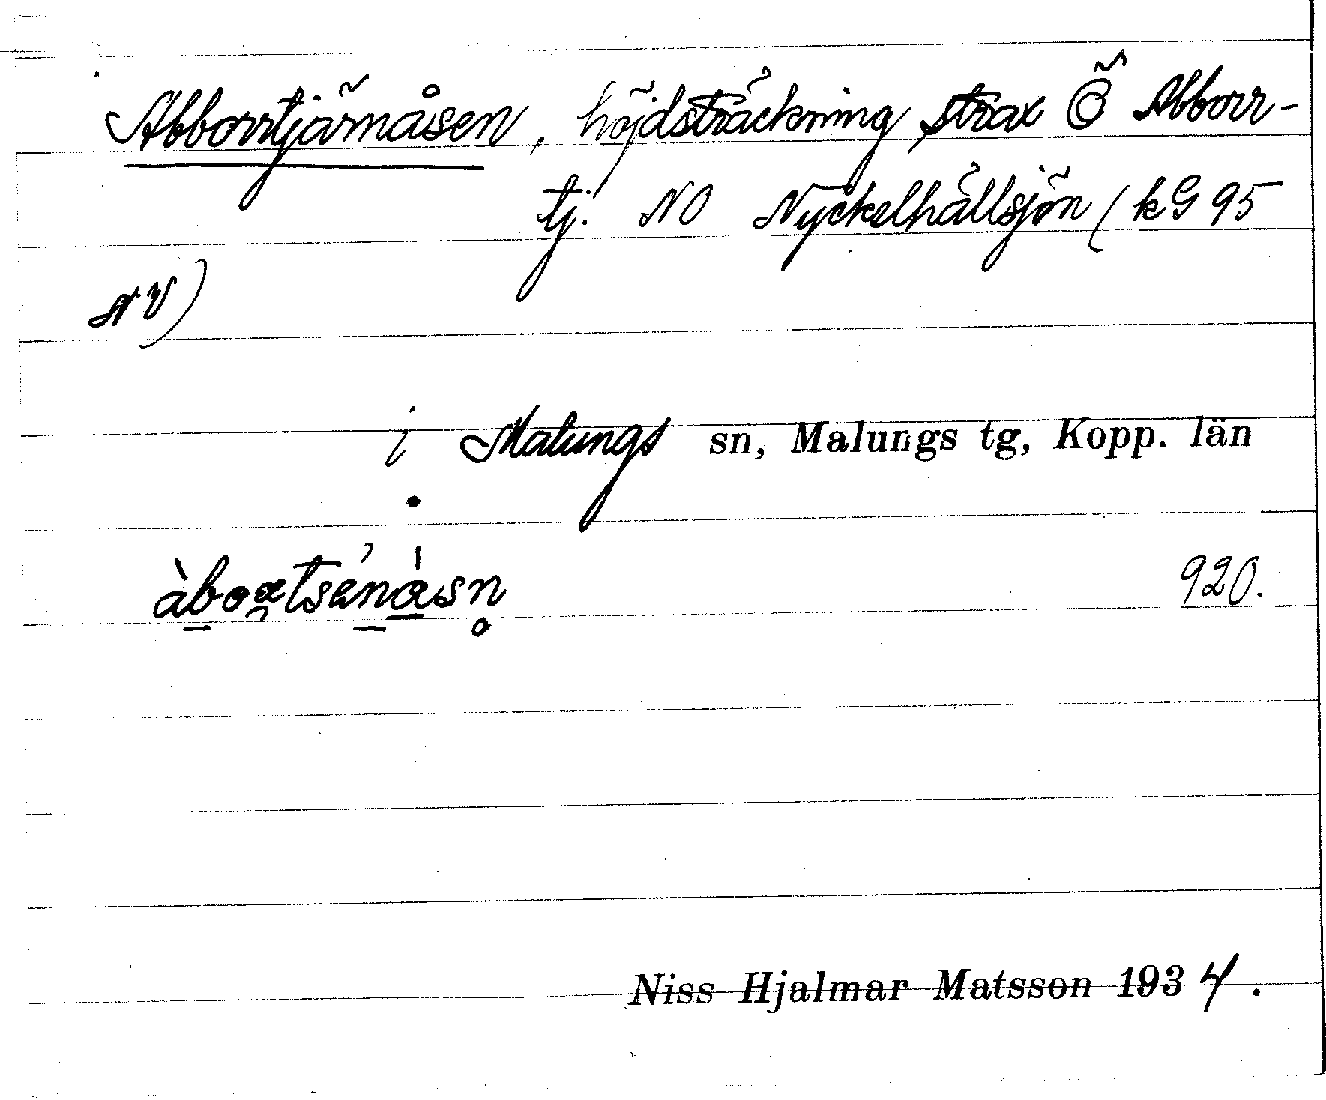 Abborrtjärnåsen, höjdsträckning strax Ö Abborr-
tj. NO Nyckelhällsjön (kG 95
NV)
i Malungs sn, Malungs tg, Kopp. län
920.
Niss Hjalmar Matsson 1934.